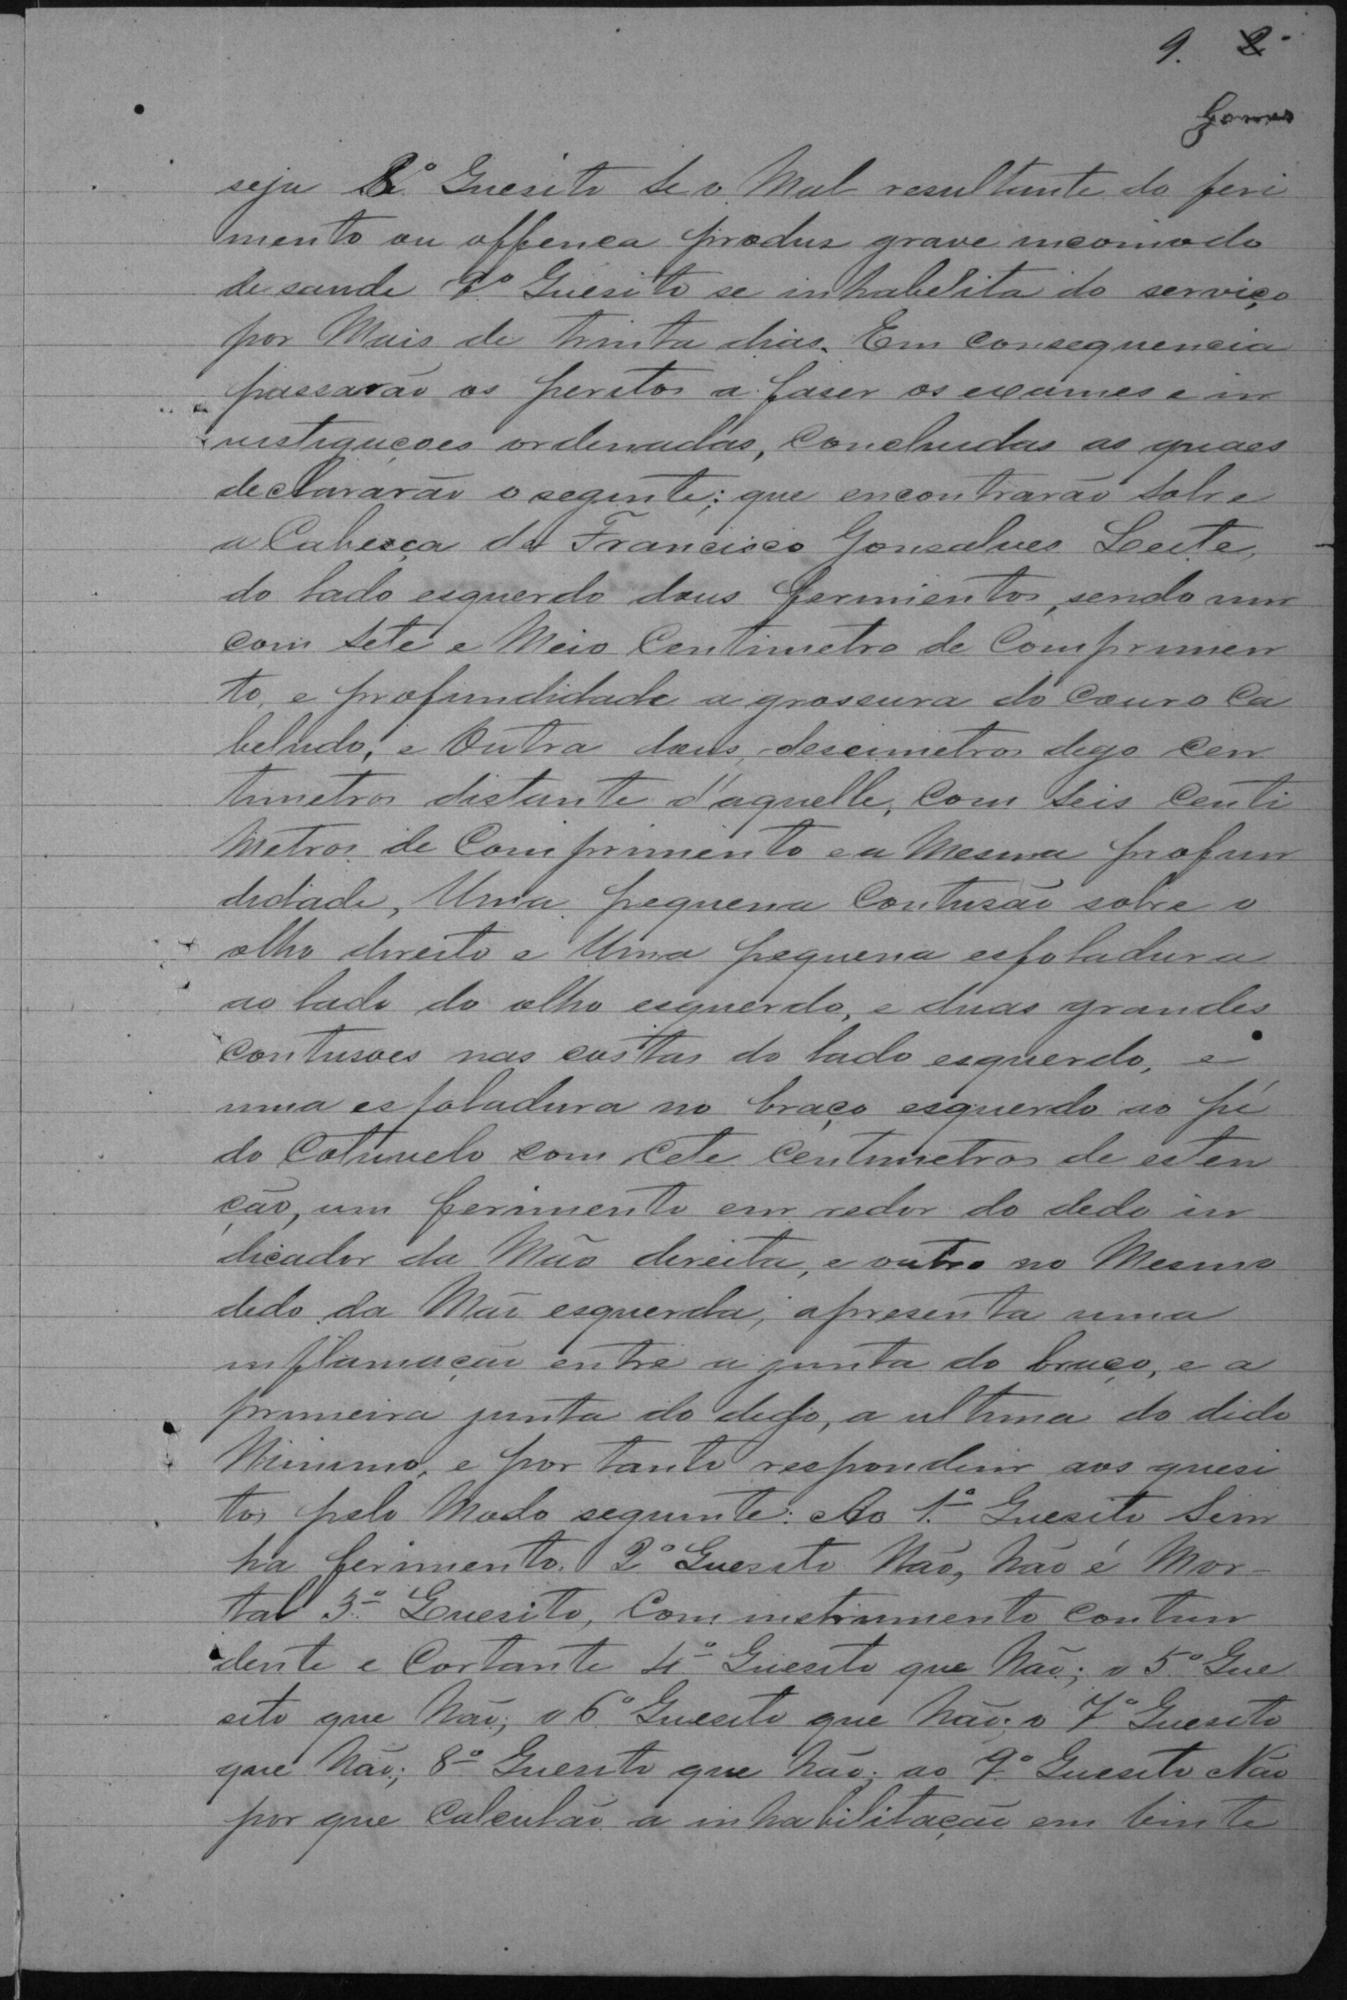 9. 8
Gomes
seja 8.º Quesito Se o Mal resultante do feri
mento ou offenca produs grave incomodo
de saude 9.º Quesito se inhabelita do serviço
por Mais de trinta dias. Em consequencia
passarão os peritos a faser os exames e in
vestigaçoes ordenadas, Concluidas as quaes
declararão o seginte; que encontrarão Sobre
a Cabeça de Francisco Gonsalves Leite,
do lado esquerdo dous ferimentos, sendo um
com Sete e Meio Centimetro de Comprimen
to, e profundidade a grossura do Couro Ca
beludo, e Outra dous, descimetros digo cen
timetros distante d'aquelle, Com Seis Centi
Metros de Comprimento e a Mesma profun
didade, Uma pequena Contusão sobre o
olho direito e Uma pequena esfoladura
ao lado do olho esquerdo, e duas grandes
Contusoes nas costas do lado esquerdo, e
uma esfoladura no braço esquerdo ao pé
do Cotuvelo com Cete Centimetros de esten
ção, um ferimento em redor do dedo in
dicador da Mão direita, e outro no Mesmo
dedo da Mão esquerda; apresenta uma
inflamação entre a junta do braço, e a
primeira junta do dedo, a ultima do dido
Minimo, e por tanto respondem aos quesi
tos pelo Modo seguinte: Ao 1.º Quesito Sim
ha ferimento. 2º Quesito Não, Não é Mor-
tal 3.º Quesito, Com instrumento Contun
dente e Cortante 4.º Quesito que Não; o 5.º Que
sito que Não; o 6.º Quesito que Não; o 7.º Quesito
que Não; 8º Quesito que Não; ao 9.º Quesito Não
por que Calculão a inhabilitação em vinte